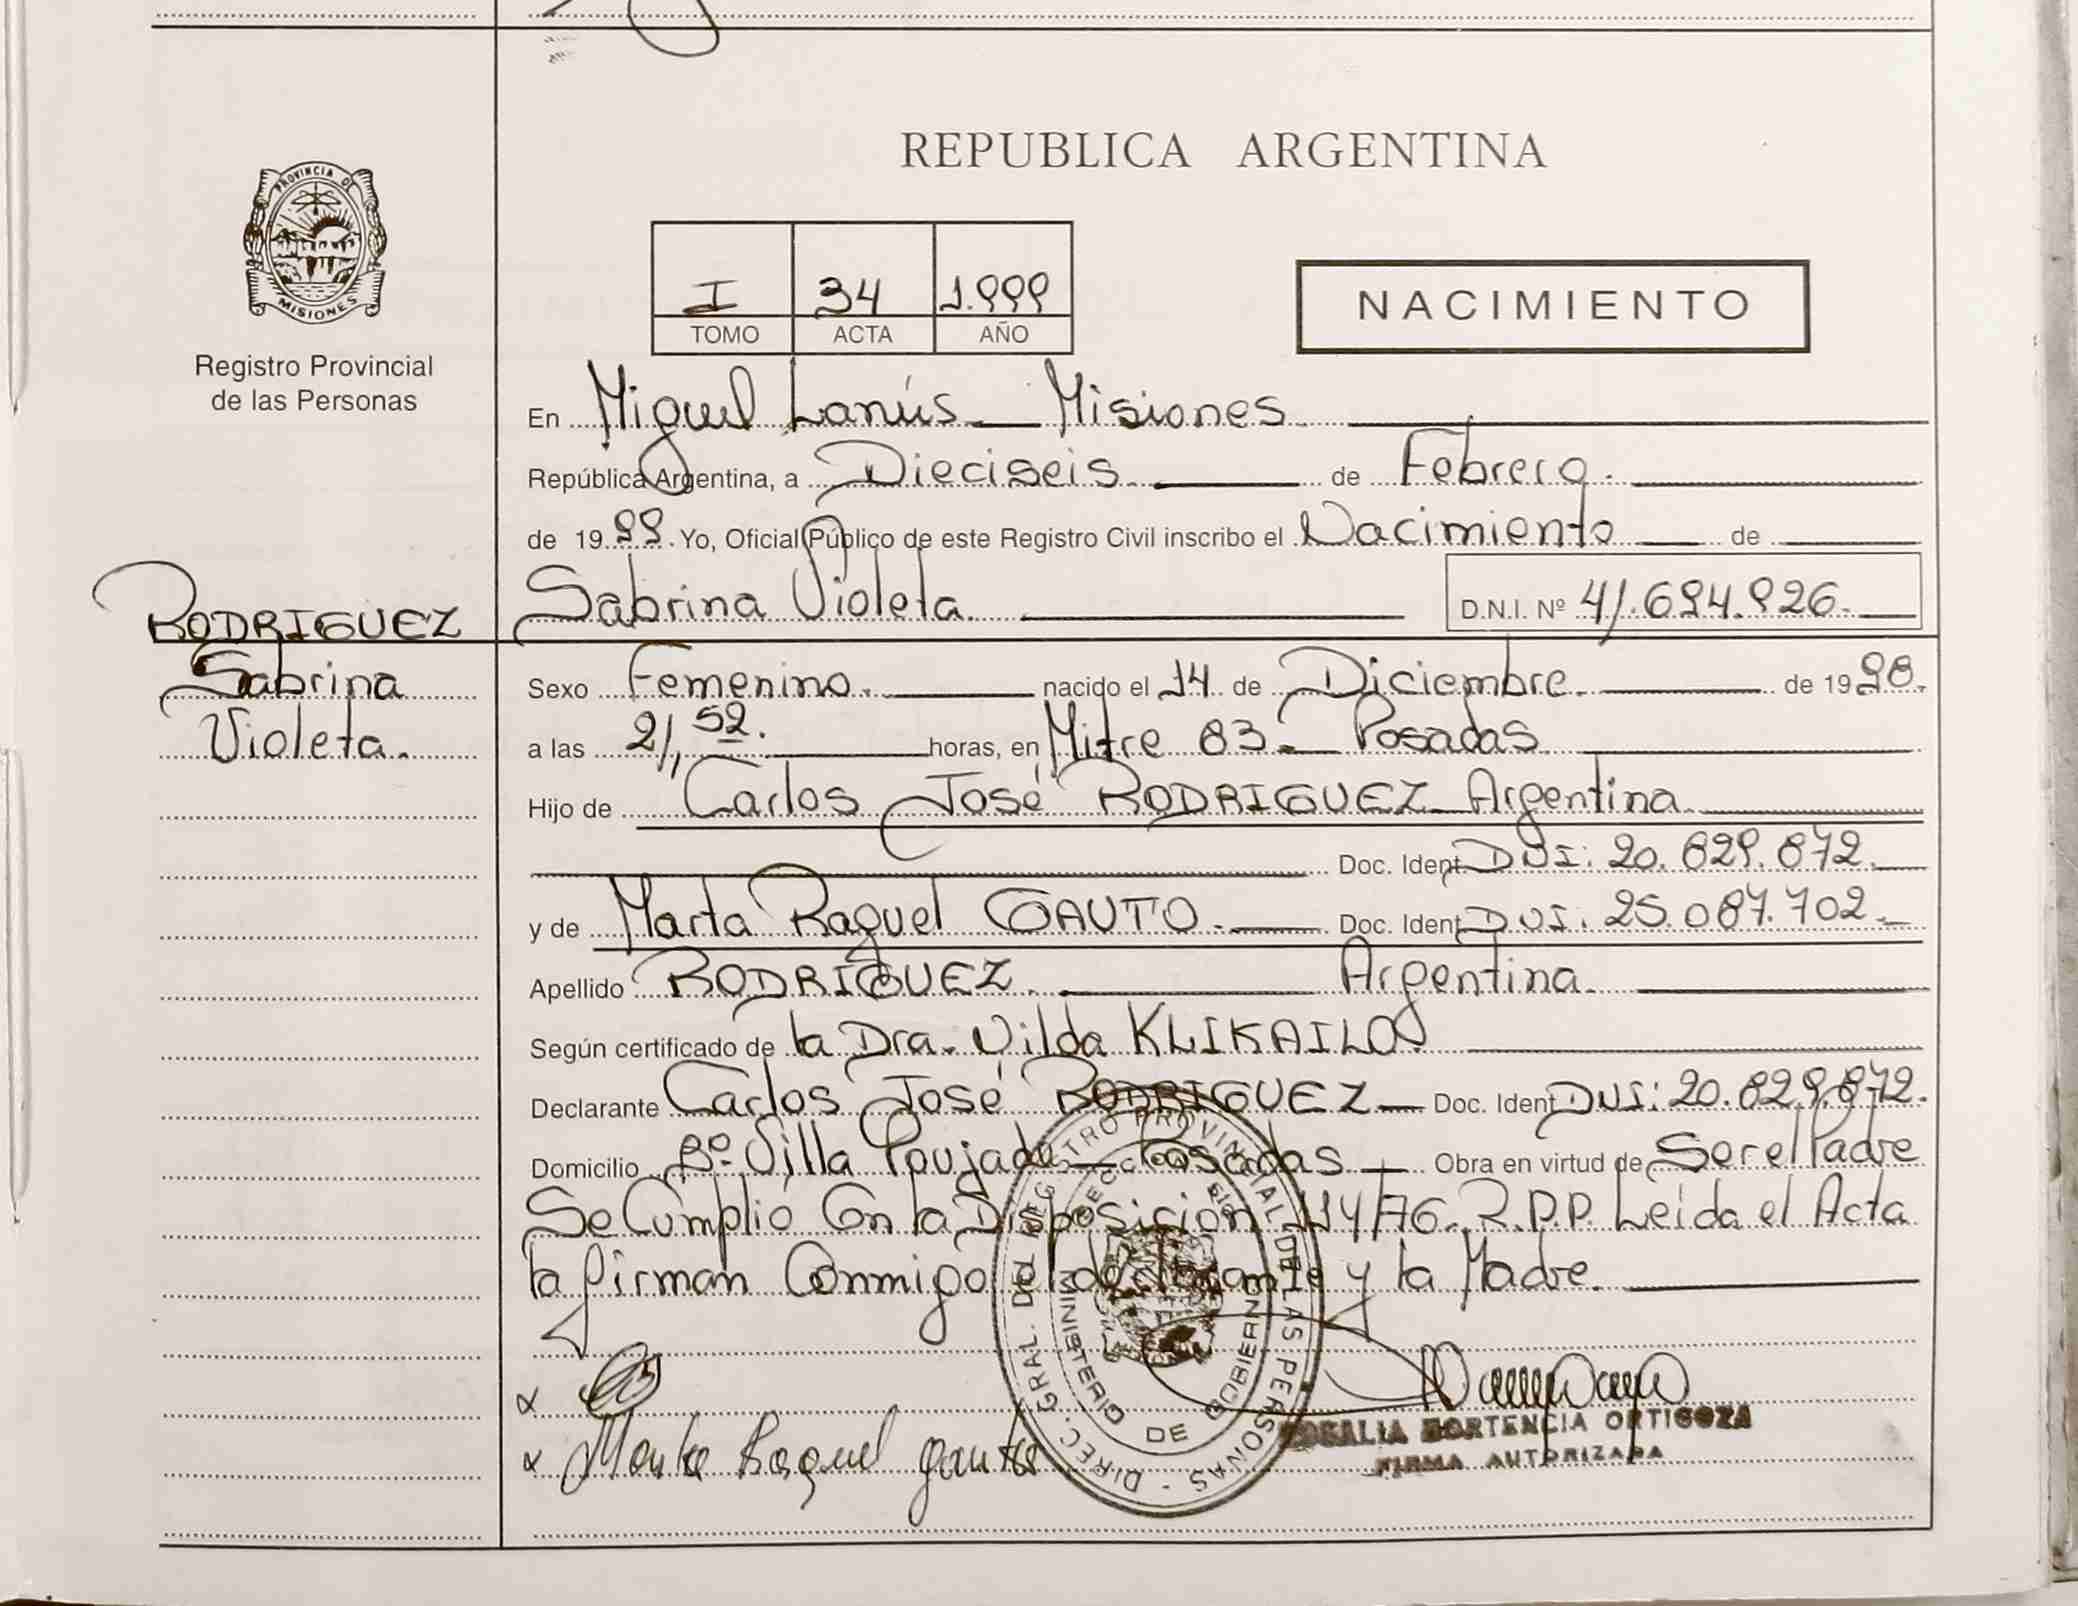 REPUBLICA ARGENTINA
PROVINCIA DE
MISIONES
Registro Provincial
de las Personas
I 34 1.999
TOMO ACTA AÑO
NACIMIENTO
En Miguel Lanús - Misiones.
República Argentina, a Dieciseis. de Febrero.
de 1999. Yo, Oficial Público de este Registro Civil inscribo el Nacimiento de
Sabrina Violeta. D.N.I. Nº 41.694.926.
RODRIGUEZ
Sabrina
Violeta.
Sexo Femenino. nacido el 14 de Diciembre. de 1998.
a las 21,52. horas, en Mitre 83 - Posadas
Hijo de Carlos José RODRIGUEZ - Argentina.
Doc. Ident. DNI: 20.829.872.
y de Marta Raquel GAUTO. Doc. Ident. DNI: 25.087.702.
Apellido RODRIGUEZ. Argentina.
Según certificado de la Dra. Vilda KLIKAILO
Declarante Carlos José RODRIGUEZ - Doc. Ident. DNI: 20.829.872.
Domicilio Bº Villa Poujade - Posadas - Obra en virtud de Ser el Padre
Se Cumplió Con la Disposición 114/76. R.P.P. Leída el Acta
la firman Conmigo el declarante y la Madre.
DIREC. GRAL. DEL REGISTRO PROVINCIAL DE LAS PERSONAS
MINISTERIO DE GOBIERNO
Marta Raquel Gauto
ROSALIA HORTENCIA ORTIGOZA
FIRMA AUTORIZADA